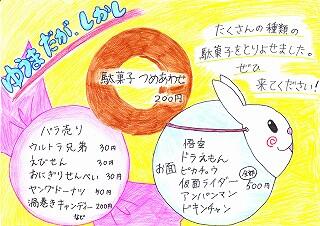 ゆうきだが、しかし
たくさんの種類の
駄菓子をとりよせました。
ぜひ
来てください!
駄菓子 つめあわせ
200円
バラ売り
ウルトラ兄弟 30円
えびせん 30円
おにぎりせんべい 30円
ヤングドーナツ 50円
渦巻きキャンディー 200円
など
お面
悟空
ドラえもん
ピカチュウ
仮面ライダー
アンパンマン
ドキンチャン
全部 500円